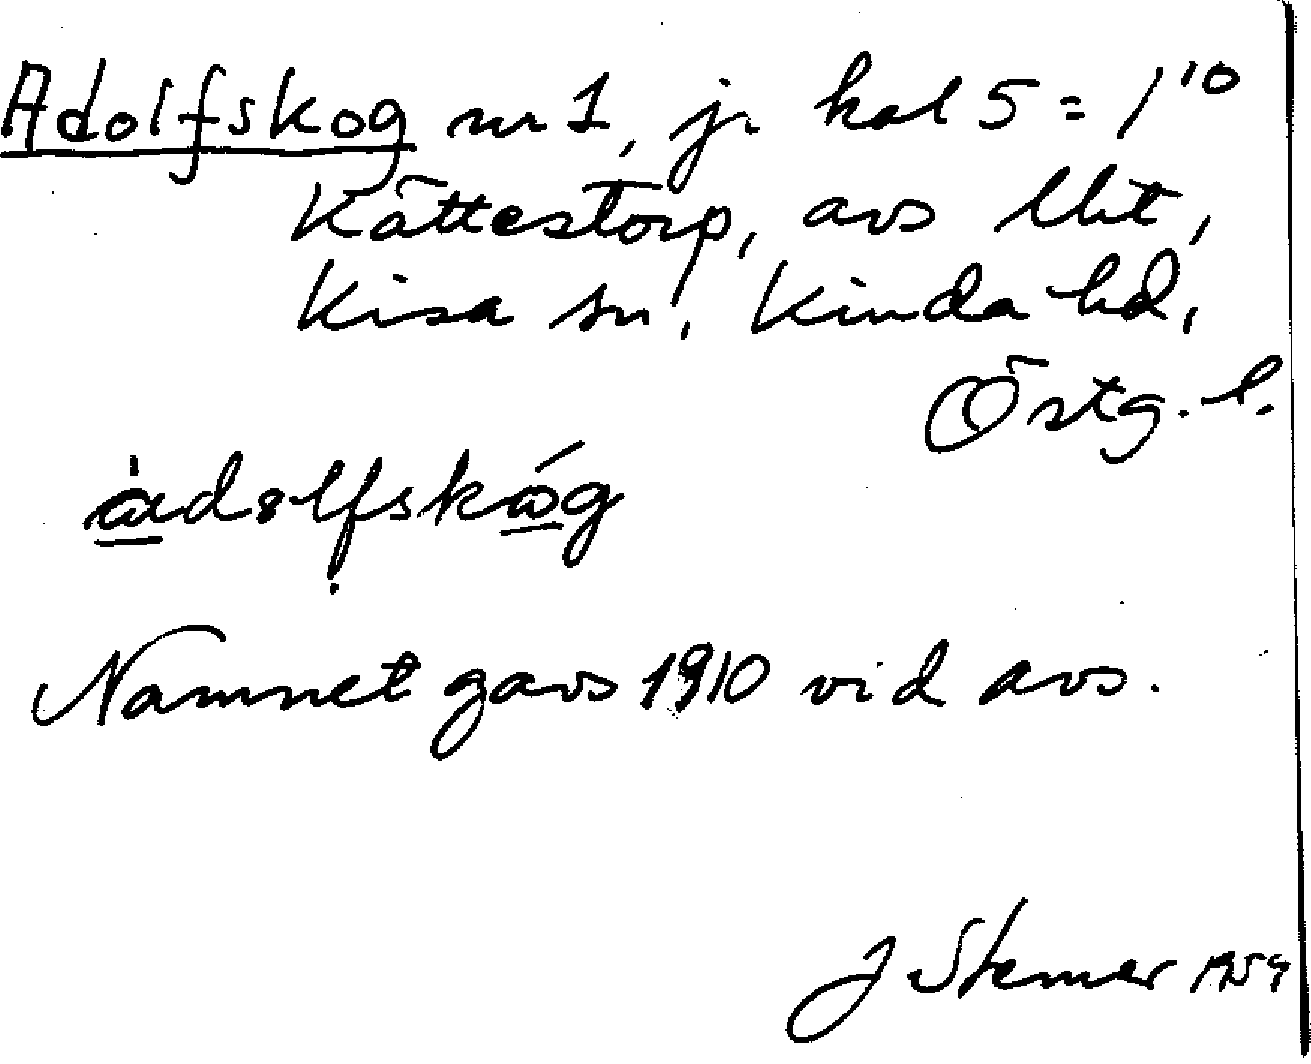 Adolfskog nr 1, jr kal 5 = 1¹⁰
Kättestorp, avs lht,
Kisa sn, Kinda hd,
Östg. l.
àdolfskóg
Namnet gavs 1910 vid avs.
J Stemer 1954